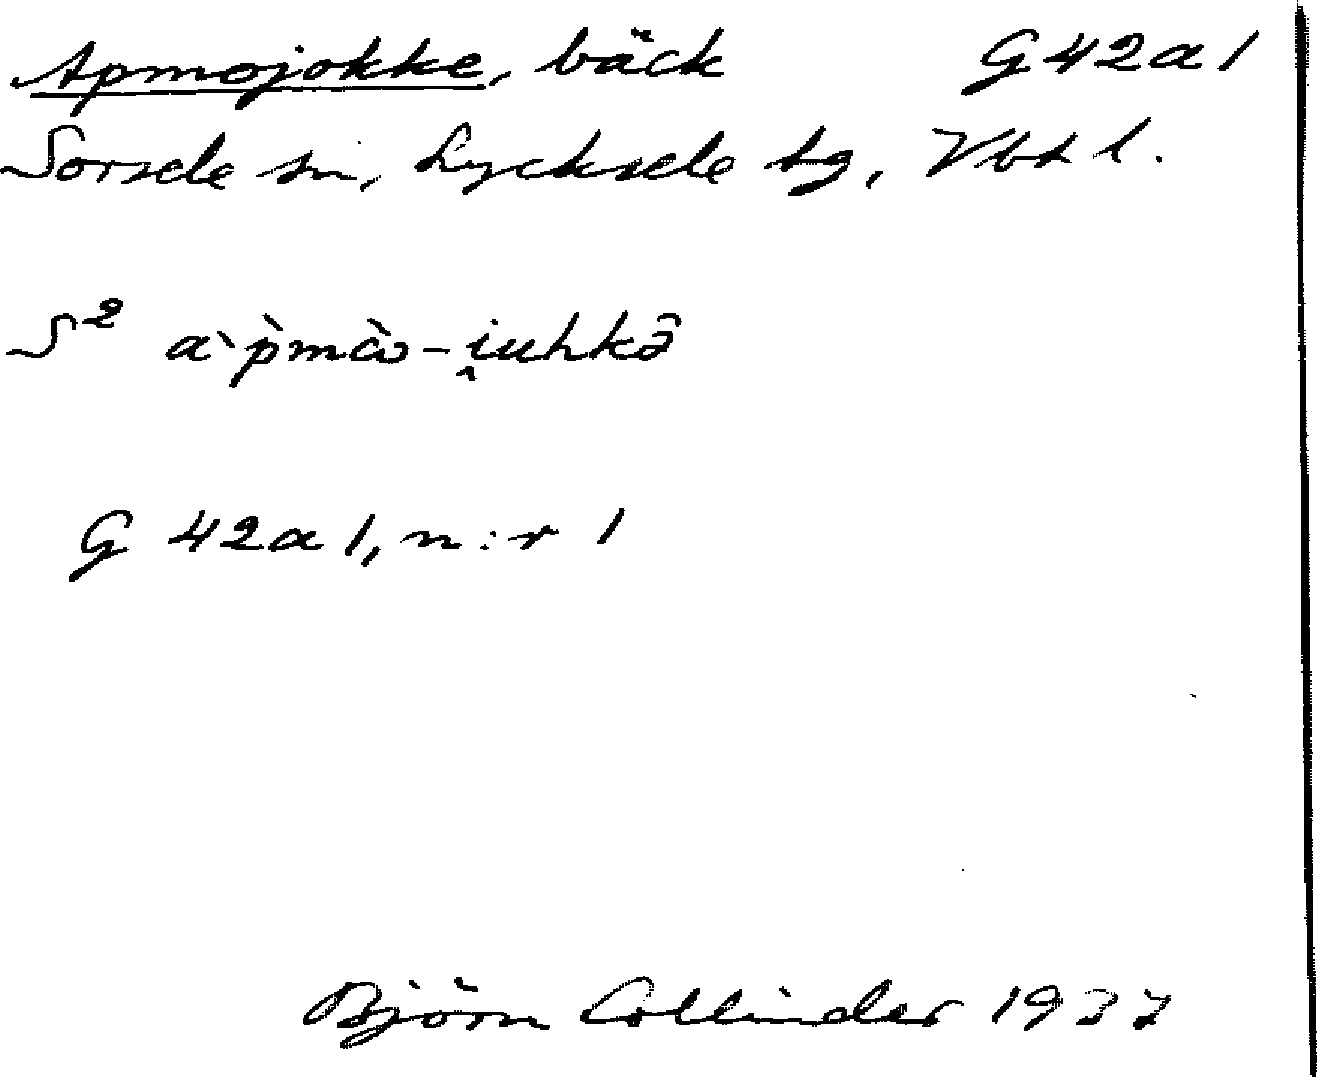 Apmojokke, bäck G42a1
Sorsele sn, Lycksele tg, Vbt l.
S² a`ṗmæ̀-i̯uhkə̑
G 42a1, n:r 1
Björn Collinder 1937